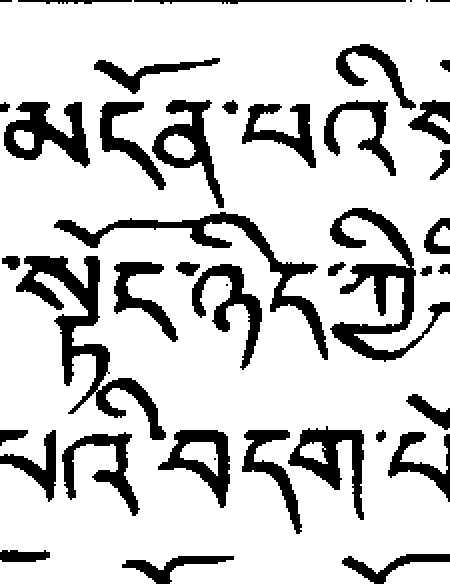 མངོན་པའི་
སྟོང་ཉིད་ཀྱི་
པའི་བདག་པོ